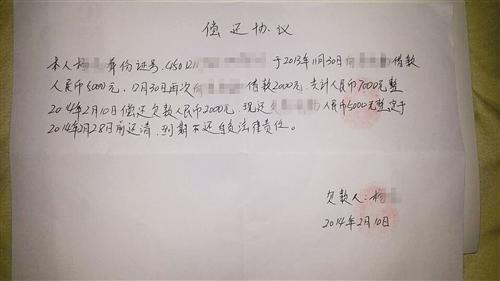 偿还协议
本人杨 身份证号:450121 于2013年11月30日向 借款
人民币5000元,12月30日再次向 借款2000元,共计人民币7000元整
2014年2月10日偿还欠款人民币2000元,现还欠 人民币5000元整定于
2014年2月28日前还清,到期不还自负法律责任。
欠款人:杨
2014年2月10日